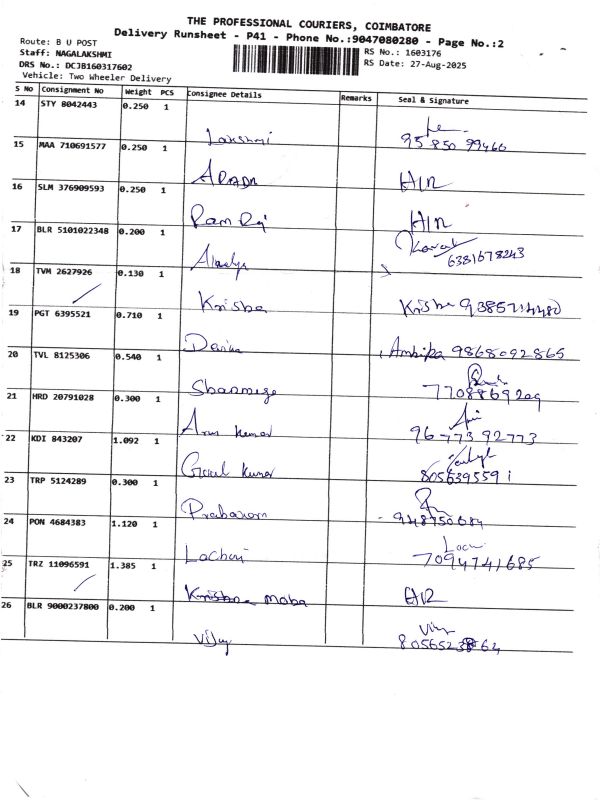 THE PROFESSIONAL COURIERS, COIMBATORE
Delivery Runsheet - P41 - Phone No.:9047080280 - Page No.:2
Route: B U POST
RS No.: 1603176
Staff: NAGALAKSHMI
RS Date: 27-Aug-2025
DRS No.: DCJB160317602
Vehicle: Two Wheeler Delivery
S No Consignment No Weight PCS Consignee Details Remarks Seal & Signature
14 STY 8042443 0.250 1
Lakshmi 95850 99466
15 MAA 710691577 0.250 1
H/R
16 SLM 376909593 0.250 1
Ram Raj H/R
17 BLR 5101022348 0.200 1
6381678243
18 TVM 2627926 0.130 1
Krisha Krisha
19 PGT 6395521 0.710 1
Ambika 9868092865
20 TVL 8125306 0.540 1
21 HRD 20791028 0.300 1
Arun Kumar 96 773 92773
22 KDI 843207 1.092 1
Kumar 805639559 1
23 TRP 5124289 0.300 1
Prabaram
24 PON 4684383 1.120 1
7094741685
25 TRZ 11096591 1.385 1
Krishna Moba H/R
26 BLR 9000237800 0.200 1
Vijay